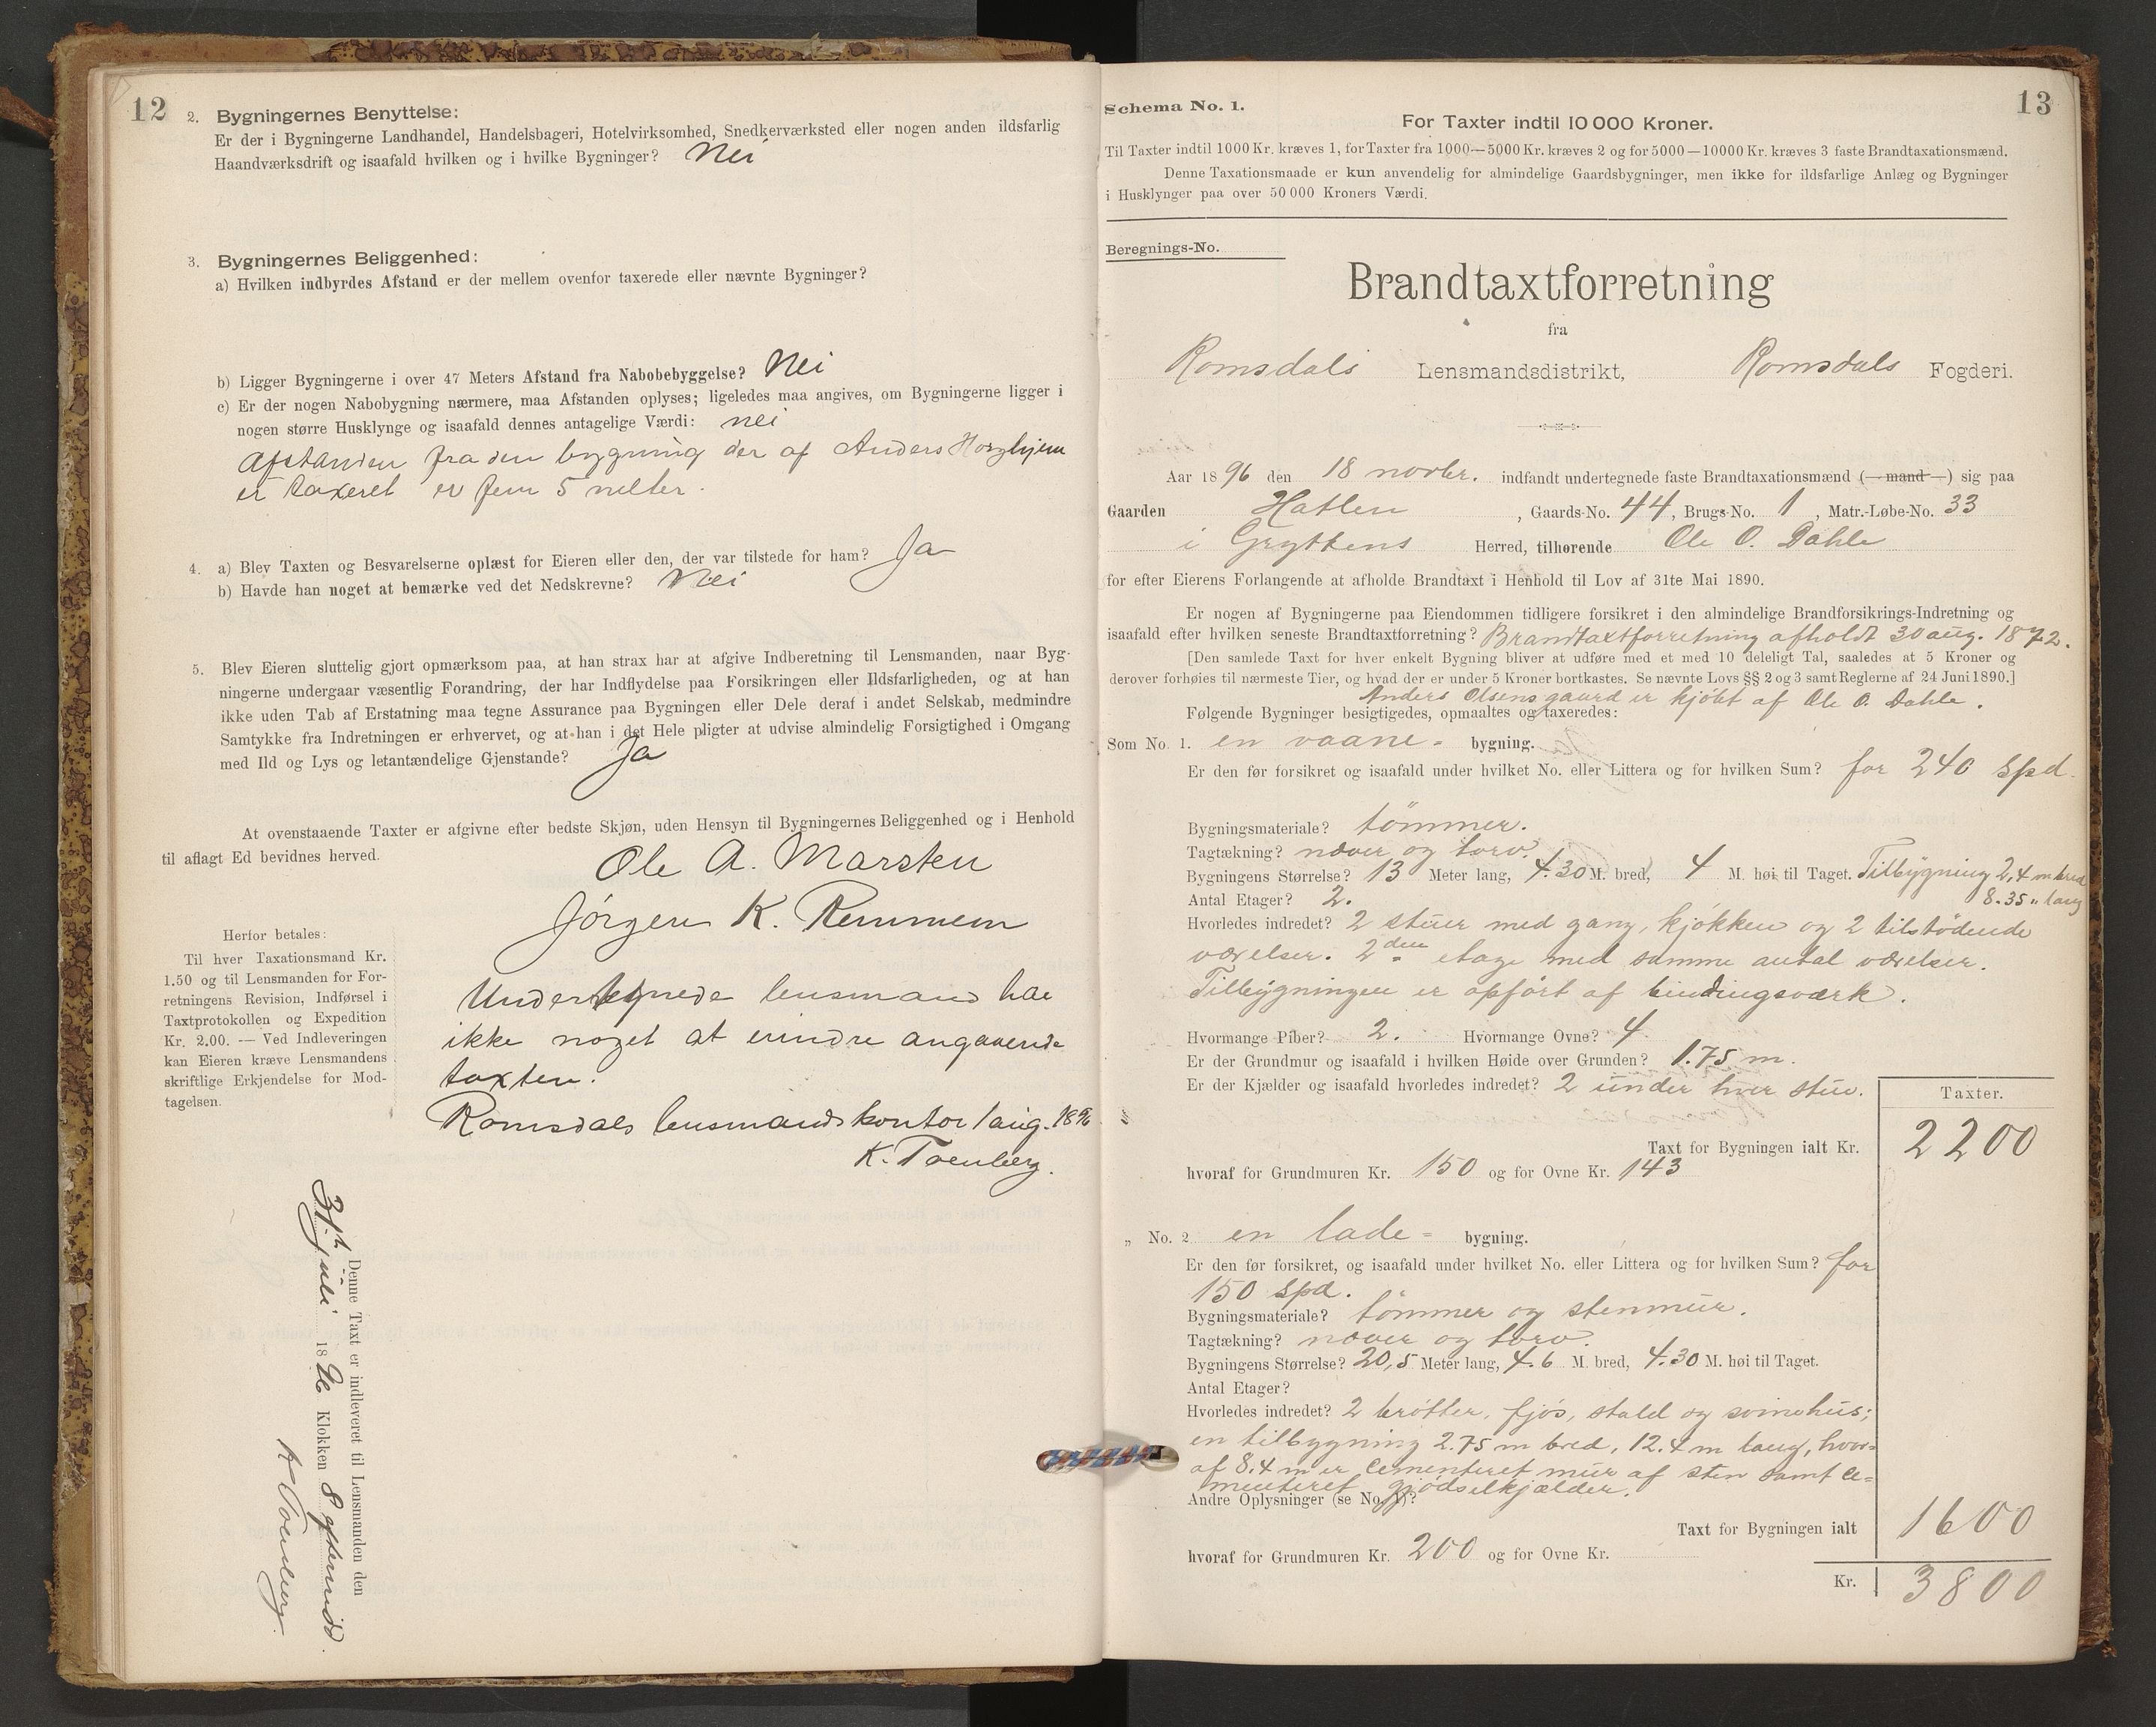 12
2. Bygningernes Benyttelse:
Er der i Bygningerne Landhandel, Handelsbageri, Hotelvirksomhed, Snedkerværksted eller nogen anden ildsfarlig
Haandværksdrift og isaafald hvilken og i hvilke Bygninger? Nei
3. Bygningernes Beliggenhed:
a) Hvilken indbyrdes Afstand er der mellem ovenfor taxerede eller nævnte Bygninger?
b) Ligger Bygningerne i over 47 Meters Afstand fra Nabobebyggelse? Nei
c) Er der nogen Nabobygning nærmere, maa Afstanden oplyses; ligeledes maa angives, om Bygningerne ligger i
nogen større Husklynge og isaafald dennes antagelige Værdi: nei
Afstanden fra den bygning der af Anders Horghjem
er taxeret er fem 5 melter.
4. a) Blev Taxten og Besvarelserne oplæst for Eieren eller den, der var tilstede for ham? Ja
b) Havde han noget at bemærke ved det Nedskrevne? Nei
5. Blev Eieren sluttelig gjort opmærksom paa, at han strax har at afgive Indberetning til Lensmanden, naar Byg-
ningerne undergaar væsentlig Forandring, der har Indflydelse paa Forsikringen eller Ildsfarligheden, og at han
ikke uden Tab af Erstatning maa tegne Assurance paa Bygningen eller Dele deraf i andet Selskab, medmindre
Samtykke fra Indretningen er erhvervet, og at han i det Hele pligter at udvise almindelig Forsigtighed i Omgang
med Ild og Lys og letantændelige Gjenstande? Ja
At ovenstaaende Taxter er afgivne efter bedste Skjøn, uden Hensyn til Bygningernes Beliggenhed og i Henhold
til aflagt Ed bevidnes herved.
Ole A. Marsten
Jörgen K. Remmem
Herfor betales:
Til hver Taxationsmand Kr.
1.50 og til Lensmanden for For-
retningens Revision, Indførsel i
Taxtprotokollen og Expedition
Kr. 2.00. — Ved Indleveringen
kan Eieren kræve Lensmandens
skriftlige Erkjendelse for Mod-
tagelsen.
Undertegnede lensmand har
ikke noget at erindre angaaende
taxten.
Romsdals lensmandskontor 1 aug. 1896
K. Toenberg.
Denne Taxt er indleveret til Lensmanden den
31te juli 1896 Klokken 8 eftermidd.
K Toenberg.
13
Schema No. 1.
For Taxter indtil 10 000 Kroner.
Til Taxter indtil 1000 Kr. kræves 1, for Taxter fra 1000—5000 Kr. kræves 2 og for 5000—10000 Kr. kræves 3 faste Brandtaxationsmænd.
Denne Taxationsmaade er kun anvendelig for almindelige Gaardsbygninger, men ikke for ildsfarlige Anlæg og Bygninger
i Husklynger paa over 50 000 Kroners Værdi.
Beregnings-No.
Brandtaxtforretning
fra
Romsdals Lensmandsdistrikt, Romsdals Fogderi.
Aar 1896 den 18 novbr. indfandt undertegnede faste Brandtaxationsmænd (—mand—) sig paa
Gaarden Hatlen, Gaards-No. 44, Brugs-No. 1, Matr.-Løbe-No. 33
i Gryttens Herred, tilhørende Ole O. Dahle
for efter Eierens Forlangende at afholde Brandtaxt i Henhold til Lov af 31te Mai 1890.
Er nogen af Bygningerne paa Eiendommen tidligere forsikret i den almindelige Brandforsikrings-Indretning og
isaafald efter hvilken seneste Brandtaxtforretning? Brandtaxtforretning afholdt 30 aug. 1872.
[Den samlede Taxt for hver enkelt Bygning bliver at udføre med et med 10 deleligt Tal, saaledes at 5 Kroner og
derover forhøies til nærmeste Tier, og hvad der er under 5 Kroner bortkastes. Se nævnte Lovs §§ 2 og 3 samt Reglerne af 24 Juni 1890.]
Anders Olsens gaard er kjöbt af Ole O. Dahle.
Følgende Bygninger besigtigedes, opmaaltes og taxeredes:
Som No. 1. en vaane- bygning.
Er den før forsikret og isaafald under hvilket No. eller Littera og for hvilken Sum? for 240 Spd.
Bygningsmateriale? tömmer.
Tagtækning? næver og torv.
Bygningens Størrelse? 13 Meter lang, 4.30 M. bred, 4 M. høi til Taget. Tilbygning 2,4 m bred
8.35 " lang
Antal Etager? 2.
Hvorledes indredet? 2 stuer med gang, kjökken og 2 tilstödende
værelser. 2den etage med samme antal værelser.
Tilbygningen er opfört af bindingsværk.
Hvormange Piber? 2. Hvormange Ovne? 4
Er der Grundmur og isaafald i hvilken Høide over Grunden? 1.75 m.
Er der Kjælder og isaafald hvorledes indredet? 2 under hver stue.
Taxter.
Taxt for Bygningen ialt Kr. 2200
hvoraf for Grundmuren Kr. 150 og for Ovne Kr. 143
„ No. 2 en lade- bygning.
Er den før forsikret, og isaafald under hvilket No. eller Littera og for hvilken Sum? for
150 Spd.
Bygningsmateriale? tömmer og stenmur.
Tagtækning? næver og torv.
Bygningens Størrelse? 20,5 Meter lang, 4.6 M. bred, 4.30 M. høi til Taget.
Antal Etager?
Hvorledes indredet? 2 tröfter, fjös, stald og svinehus;
en tilbygning 2.75 m bred, 12.4 m lang, hvor-
af 8.4 m er cementeret mur af sten samt ce-
menteret gjödselkjælder.
Andre Oplysninger (se No. 1)?
Taxt for Bygningen ialt 1600
hvoraf for Grundmuren Kr. 200 og for Ovne Kr.
Kr. 3800